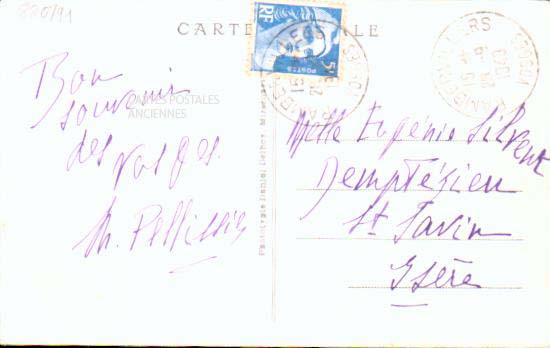 220/91
CARTE POSTALE
RF
POSTES
VOSGES
Bon
souvenir
CARTES POSTALES
ANCIENNES
des Vosges.
M. Pellissier
Melle Eugénie Silvent
Demptézieu
St Savin
Isère